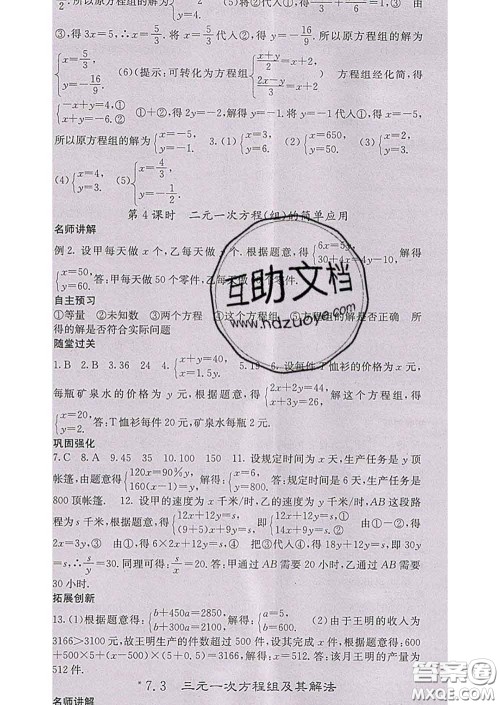 ③,得3x=5,∴x=5/3.将x=5/3代入②,得
{x=5/3, y=-16/9. (6)(提示:可转化为方程组{(x+y)/2=x+2 (2x-y)/3=x+2 方程组经化简,得
{-x+y=4,① ①+②,得2y=-2.
所以原方程组的解为{x=-5, y=-1. 3.(1) (2){x=650, y=50. (3)
(4){x=4, y=3. (5)
第4课时 二元一次方程(组)的简单应用
名师讲解
例2.设甲每天做x个,乙每天做y个.根据题意,得{6x=5y, 30+4x=4y-10, 解得
{x=50, y=60. 答:甲每天做50个零件,乙每天做60个零件.
自主预习
①等量 ②未知数 ③两个方程 ④这个方程组 ⑤方程组的解是否正确 所
得的解是否符合实际问题
随堂过关
1.B 2.B 3.36 24 4.{x+y=40, x=1.5y. 5.19 6.设每件T恤衫的价格为x元,
每瓶矿泉水的价格为y元,根据题意,得{2x+2y=44, x+3y=26, 解这个方程组,得
{x=20, y=2. 答:T恤衫每件20元,矿泉水每瓶2元.
巩固强化
7.C 8.A 9.45 35 10.100 150 11.设规定时间为x天,生产任务是y顶
帐篷,由题意得{120x=90%y, 160(x-1)=y. 解得{x=6, y=800. 答:规定时间是6天,生产任务是
800顶帐篷. 12.设甲的速度为x千米/时,乙的速度为y千米/时,AB这段路
程为s千米,根据题意,得{12x+12y=s, (9+5)x+9y=s, 即{12x+12y=s,① 14x+9y=s.② 由①-②得
2x=3y,③ 由①,得6×2x+12y=s.④ 把③代入④,得18y+12y=s,即30y
=s,∴s/y=30.同理可得:s/x=20.答:甲通过AB需要20小时,乙通过AB需要
30小时.
拓展创新
13.(1)根据题意得:{b+450a=2850, b+300a=2100. 解得:{a=5, b=600. (2)由于王明的收入为
3166>3100元,故王明生产的件数超过500件,设其完成x件,根据题意,得:600
+5×500+5(1+0.1)(x-500)=3166.解得:x=512.所以王明该月的产量为
512件.
*7.3 三元一次方程组及其解法
名师讲解
互助文档
www.hdzuoye.com
答案圈
MXQE.COM